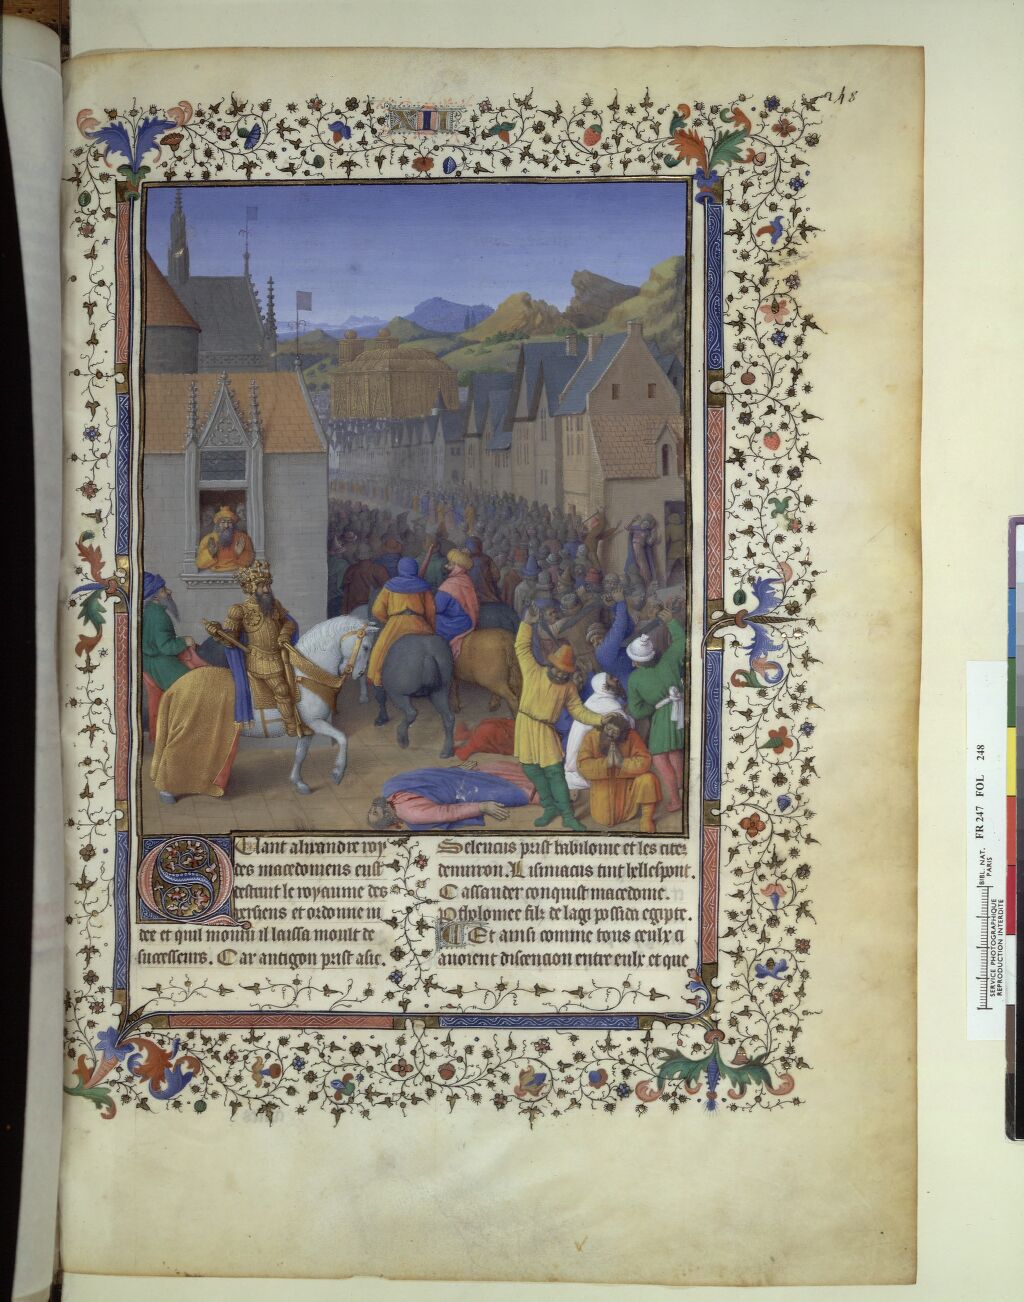 248
XII
Quant alixandre roy
des macedoniens eust
destruit le royaume des
persiens et ordonne in
dee et quil mouru il laissa moult de
successeurs. Car antigon prist asie.
Seleucus prist babilonie et les citez
denuiron. Lisimacus tint hellespont.
Cassander conquist macedone.
ptholomee filz de lagi posseda egipte.
Et ainsi comme tous ceulx ci
auoient discencion entre eulx et que
BIBL. NAT. PARIS FR 247 FOL 248
SERVICE PHOTOGRAPHIQUE
REPRODUCTION INTERDITE